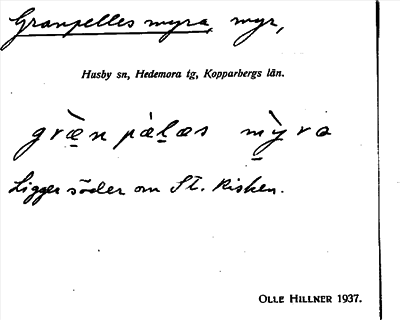 Granpelles myra, myr,
Husby sn, Hedemora tg, Kopparbergs län.
græ̀n pàlas mỳra
Ligger söder om St. Risken.
OLLE HILLNER 1937.